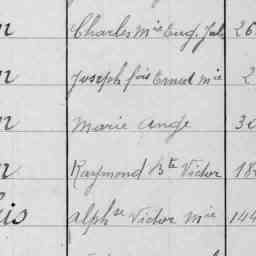 n Charles Mie Eug. Jul 26
n Joseph fois Ernest Mie 2
n Marie Ange 30
n Raymond Bte Victor 18
is Alphse Victor Mie 144